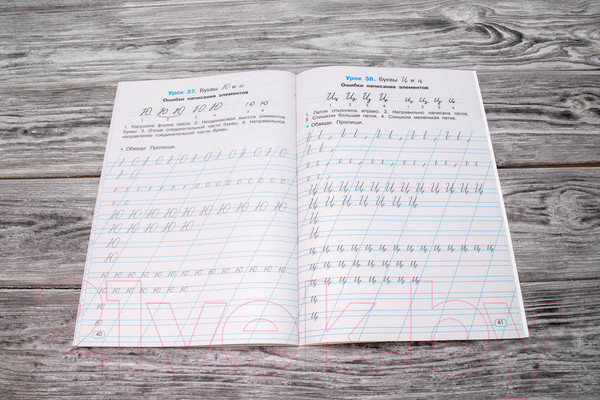 Урок 37. Буквы Ю и ю
Ошибки написания элементов
Ю Ю Ю Ю Ю Ю Ю
1 2 3 4 1 4
1. Нарушена форма овала. 2. Неодинаковая высота элементов
буквы. 3. Отрыв соединительной части буквы. 4. Неправильное
направление соединительной части буквы.
• Обведи. Пропиши.
Ю Ю Ю Ю Ю Ю Ю Ю Ю Ю Ю
Ю Ю Ю Ю Ю
Ю
Ю
ю ю ю ю ю ю ю ю ю ю ю ю ю ю
ю ю ю ю ю ю ю
ю
ю
40
Урок 38. Буквы Ц и ц
Ошибки написания элементов
Ц Ц Ц Ц ц ц ц ц
1 2 3 4 1 2 3 4
1. Петля отклонена вправо. 2. Неправильно написана петля.
3. Слишком большая петля. 4. Слишком маленькая петля.
• Обведи. Пропиши.
Ц Ц Ц Ц Ц Ц Ц Ц Ц Ц Ц Ц
Ц Ц Ц Ц Ц Ц Ц
Ц
Ц
ц ц ц ц ц ц ц ц ц ц ц ц ц ц
ц ц ц ц ц ц ц ц
ц ц ц ц ц ц ц ц
ц
ц
41
21vek.by